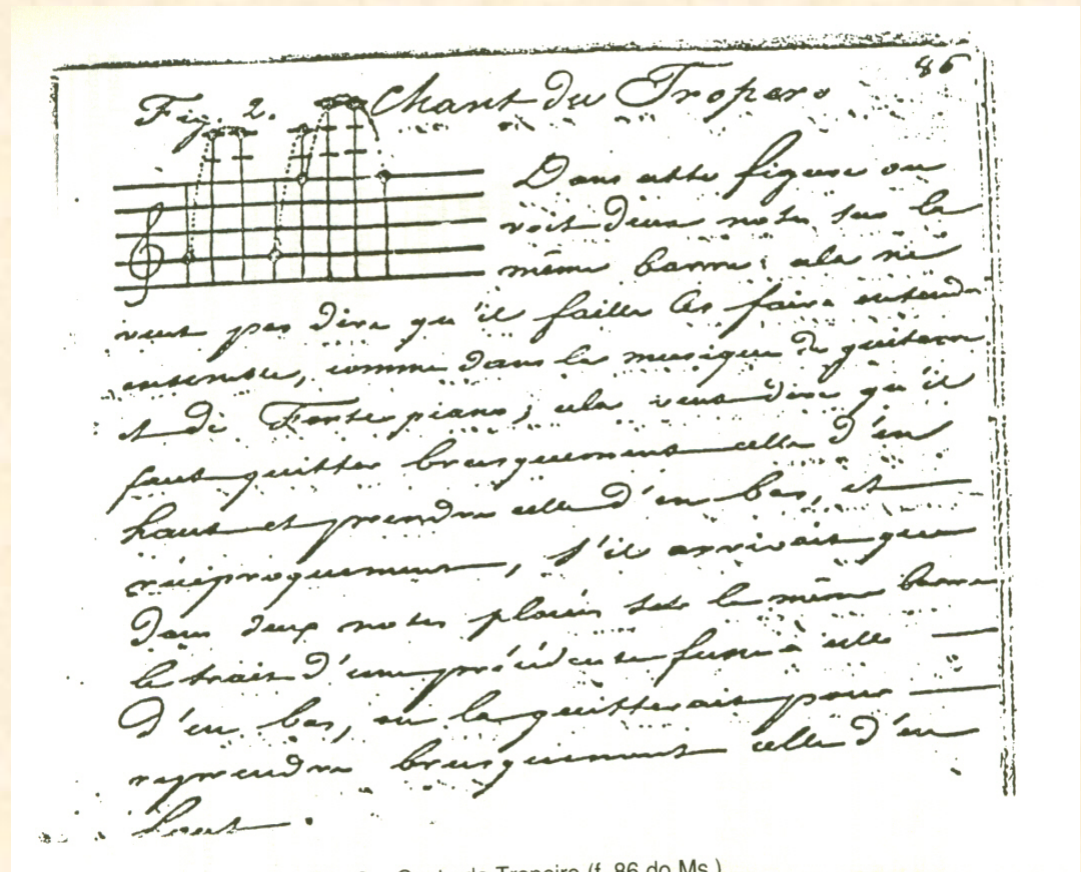 86
Fig. 2. Chant du Tropero
Dans cette figure on
voit deux notes sur la
même barre; cela ne
veut pas dire qu'il faille les faire entendre
ensemble, comme dans la musique de guitare
et de Forte piano; cela veut dire qu'il
faut quitter brusquement celle d'en
haut et prendre celle d'en bas, et
réciproquement, s'il arrivait que
dans deux notes placées sur la même barre
le trait d'une précédente fusse à celle
d'en bas, on la quitterait pour
reprendre brusquement celle d'en
haut.
Tropeiro (f. 86 do Ms.)